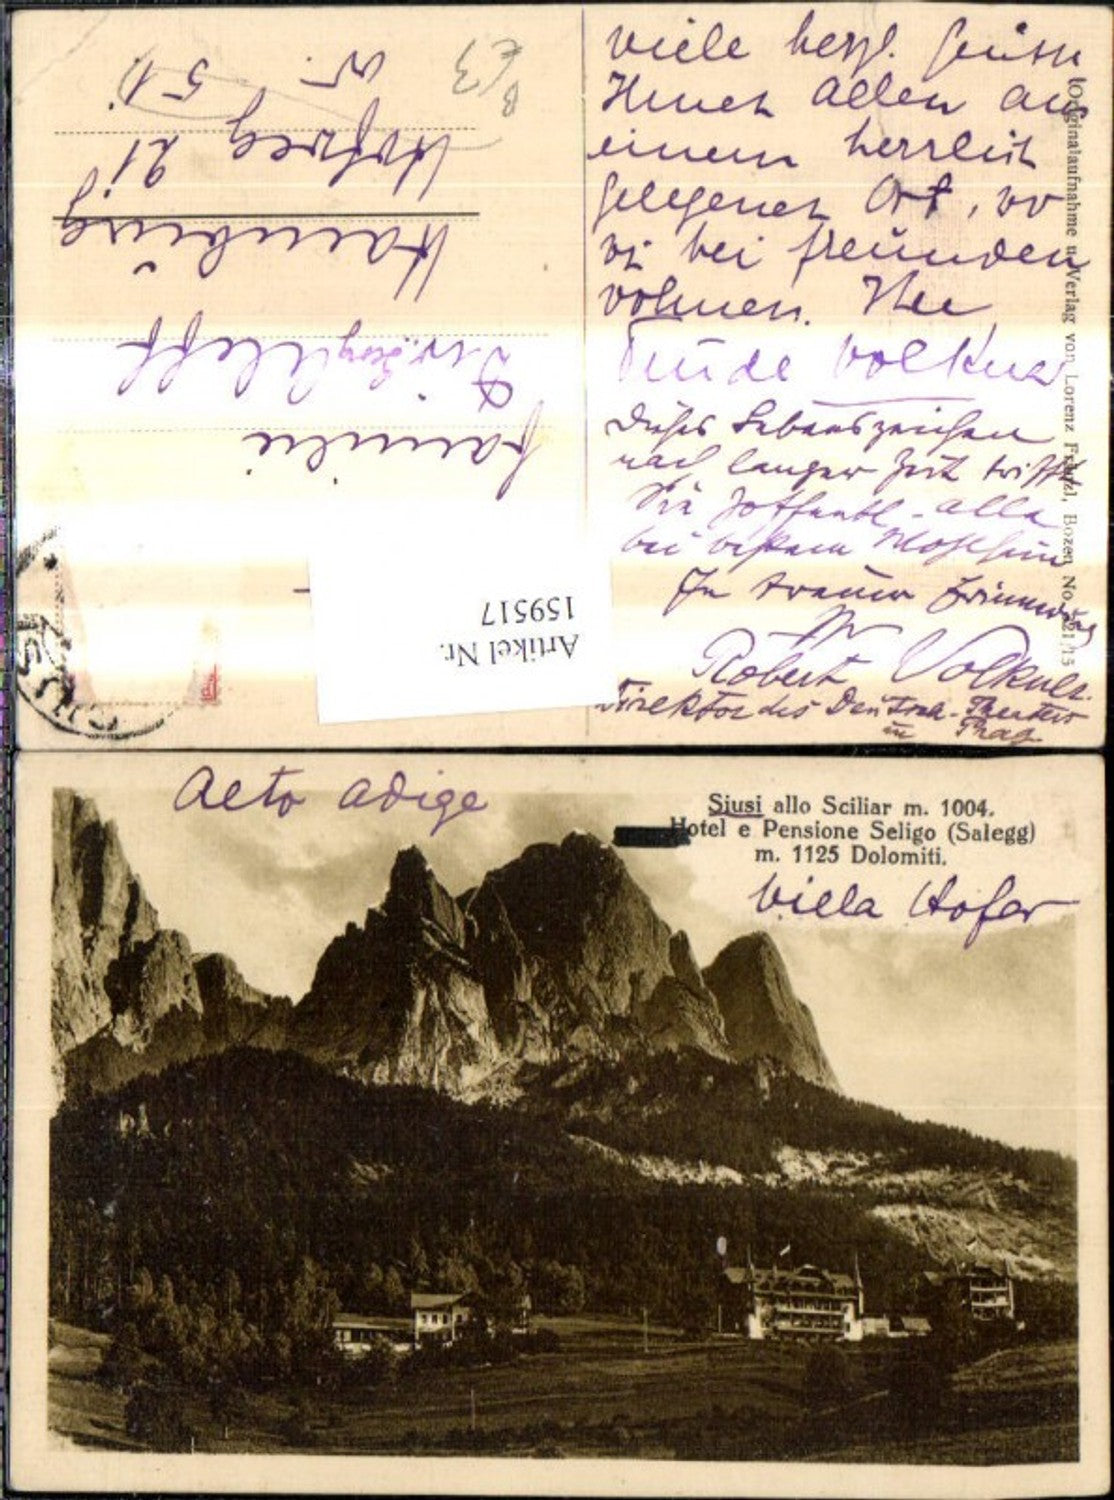 viele herzl. Grüsse
Ihnen Allen aus
einem herrlich
gelegenen Ort, wo
wi bei Freunden
wohnen. Ihre
Trude Volkner
Dieses Lebenszeichen
nach langer Zeit trifft
Sie hoffentl. alle
bei bestem Wohlsein
In treuer Erinnerung
Ihr
Robert Volkner
Direktor des Deutsch. Theaters
in Prag
Originalaufnahme u. Verlag von Lorenz Fränzl, Bozen No. 21/15
Familie
Hamburg
21
51
Artikel Nr.
159517
Aeto Adige
Siusi allo Sciliar m. 1004.
Hotel e Pensione Seligo (Salegg)
m. 1125 Dolomiti.
Villa Hofer